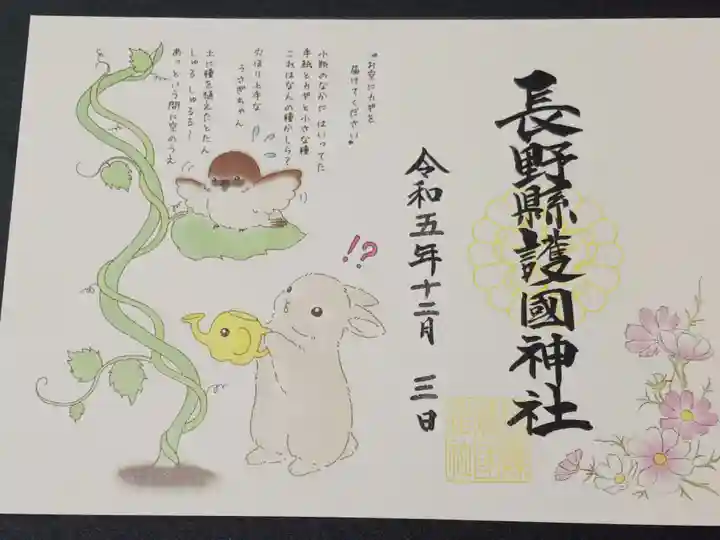 長野縣護國神社
令和五年十二月 三日
"お空にカギを
届けてください"
小瓶のなかに はいってた
手紙とカギと小さな種
これはなんの種かしら?
穴ほり上手な
うさぎちゃん
土に種を植えたとたん
しゅる しゅるる〜
あっという間に空のうえ
!?